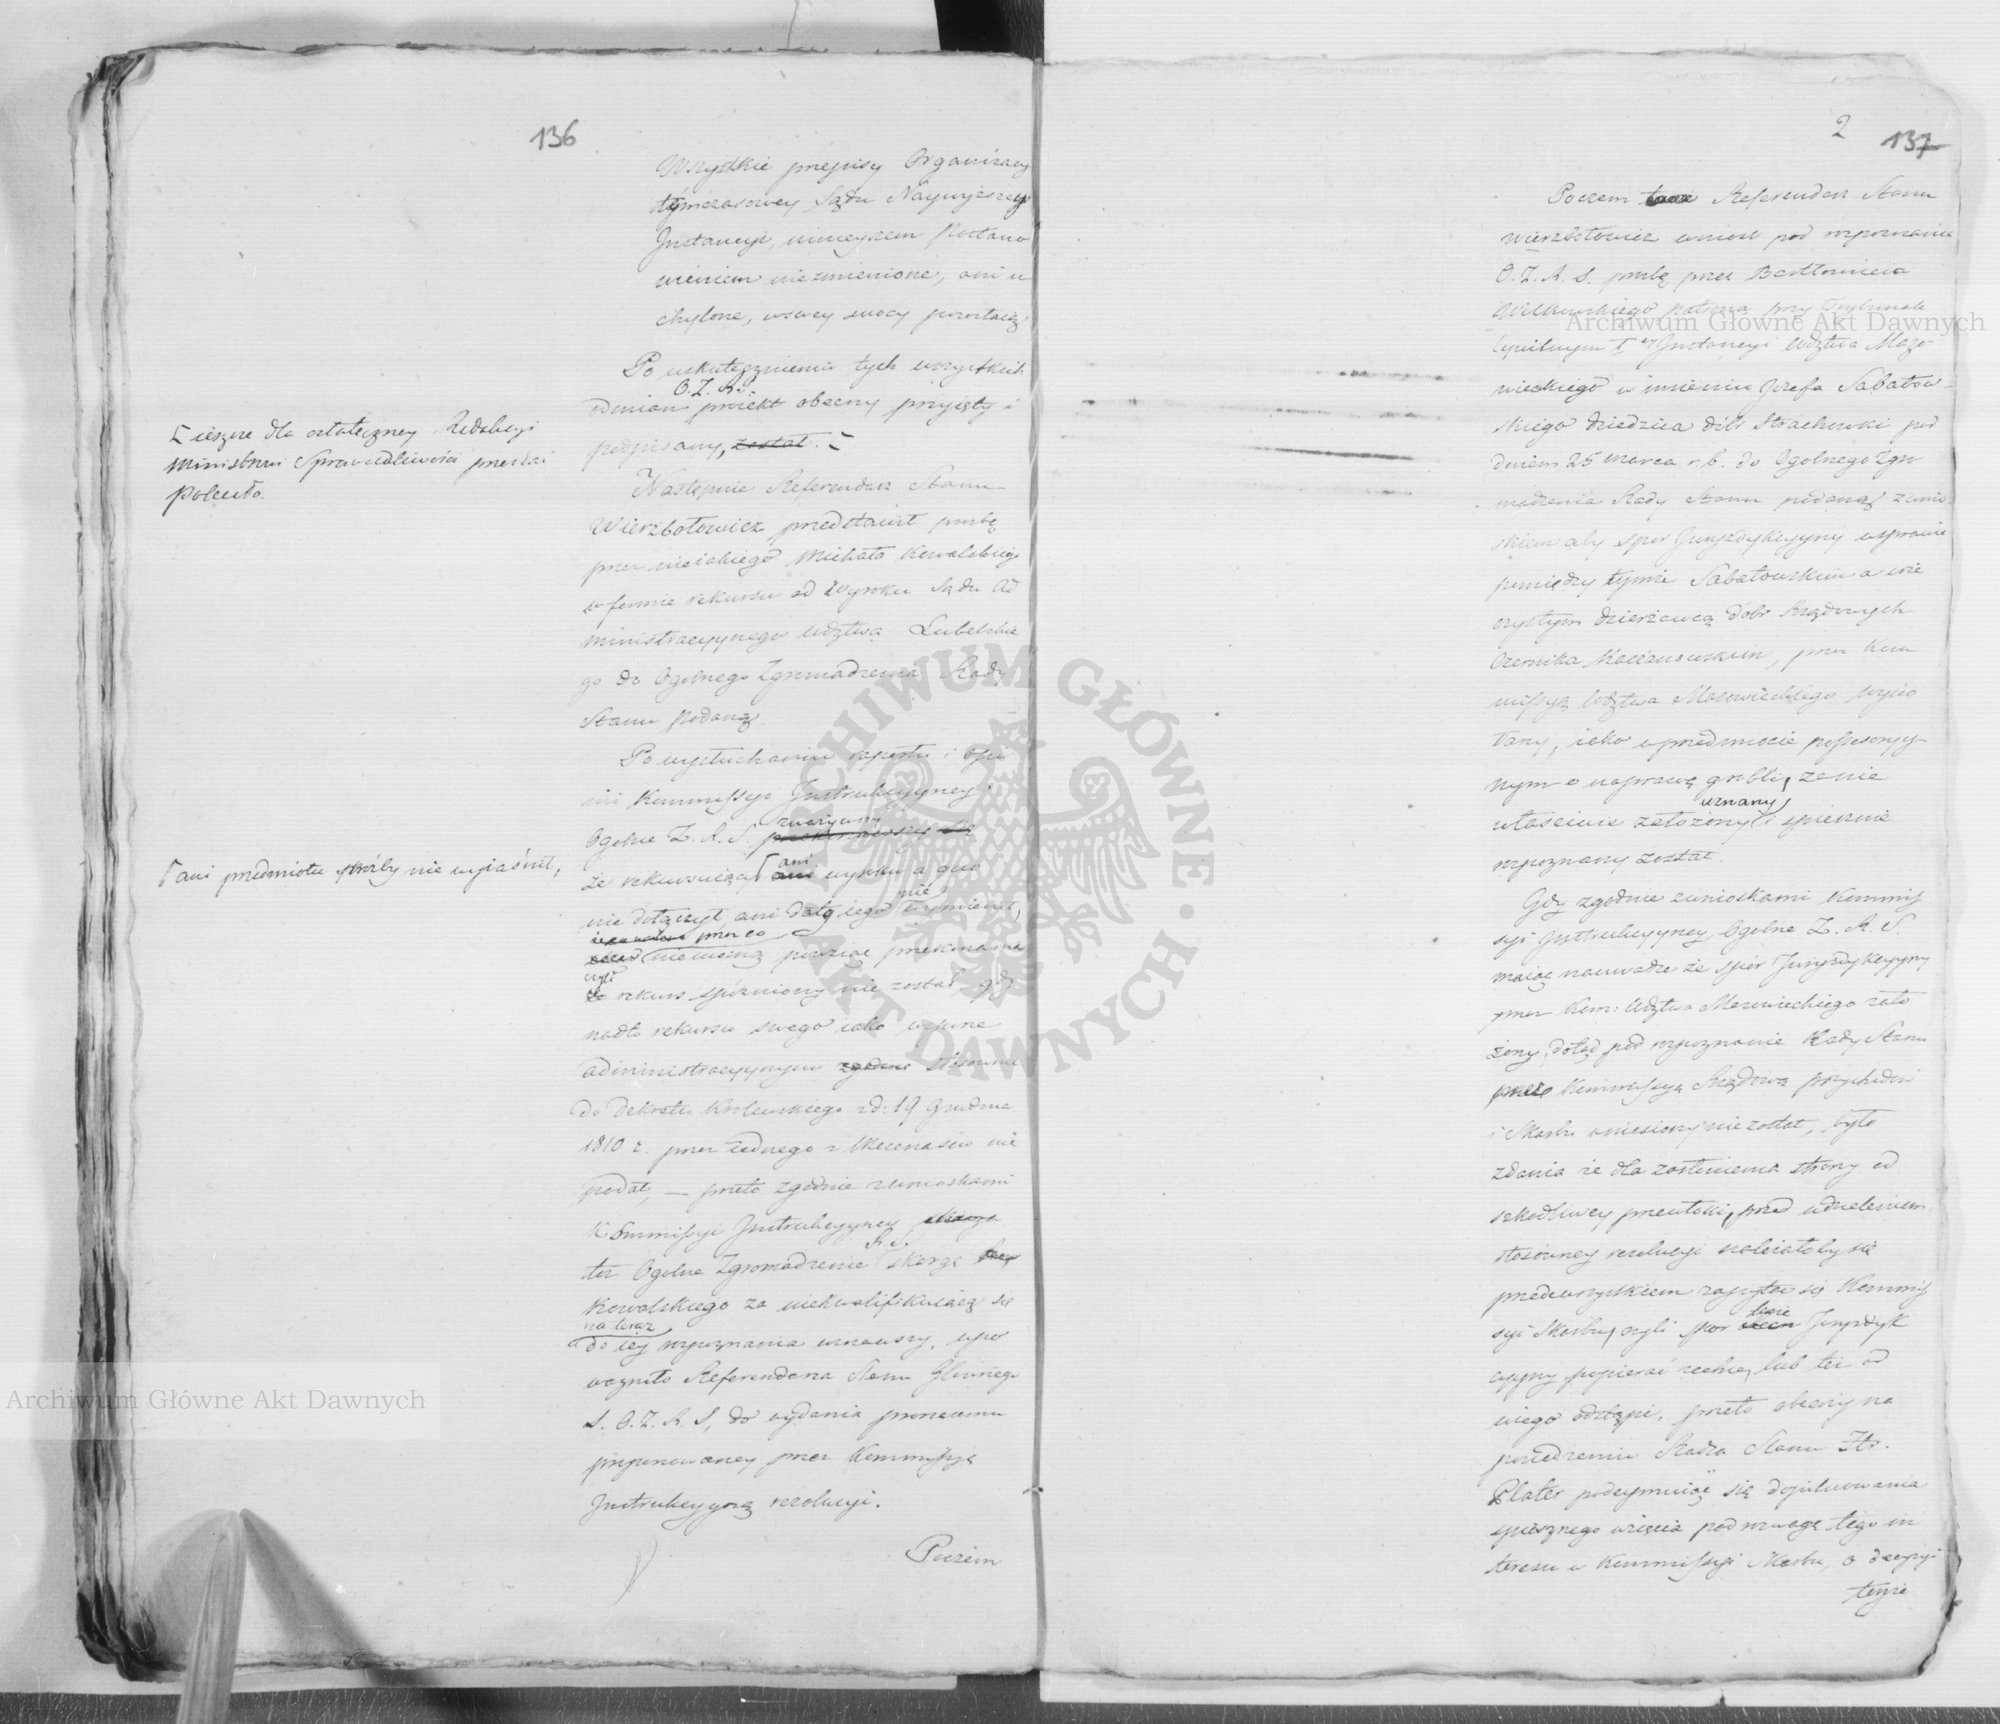 136
Wszystkie przepisy Organizacyi
tymczasowey Sądu Naywyższey
Instancyi, ninieyszem Postano
wieniem niezmienione, ani u
chylone, w swey mocy pozostaią
Po uskutecznieniu tych wszystkich
O.Z.R.S.
odmian proiekt obecny przyięty i
podpisany, został.
ieszcze dla ostateczney Redakcyi
Ministrowi Sprawiedliwości przesłać
Poleciło.
Następnie Referendarz Stanu
Wierzbołowicz przedstawił prośbę
przez nieiakiego Michała Kowalskiego
w formie rekursu od Wyroku Sądu Ad
ministracyynego Wdztwa Lubelskie
go do Ogolnego Zgromadzenia Rady
Stanu Podaną
Po wysłuchaniu raportu i opi
nii Kommissyi Instrukcyyney
zważywszy
Ogolne Z. R. S.
że rekuruiący ani wyroku a quo
ani przedmiotu skargi nie wyiaśnił,
nie dołączył ani daty iego nie wymienił,
przez co
nie można powziąć przekonania
czyli
rekurs spóźniony nie został, gdy
nadto rekursu swego iako w sporze
administracyynym zgodnie stosownie
do dekretu Krolewskiego z d: 19 Grudnia
1810 r. przez iednego z Mecenasów nie
podał, — przeto zgodnie z wnioskami
Kommissyi Instrukcyyney
R. S.
też Ogolne Zgromadzenie skargę
Kowalskiego za niekwalifikuiącą się
na teraz
do iey rozpoznania uznawszy, upo
ważniło Referendarza Stanu Głównego
S. O. Z. R. S, do wydania proszącemu
proponowaney przez Kommissyę
Instrukcyyną rezolucyi.
Poczém
2
137
Poczem Referendarz Stanu
Wierzbołowicz wniósł pod rozpoznanie
O. Z. R. S. prośbę przez Bartłomieia
Wilkowskiego Patrona przy Trybunale
Cywilnym I ey Instancyi Wdztwa Mazo
wieckiego w imieniu Jozefa Sabatow-
skiego dziedzica dóbr Strachowki pod
dniem 25 marca r. b. do Ogolnego Zgro
madzenia Rady Stanu podaną z wnio
skiem aby spor Juryzdykcyyny w sprawie
pomiędzy tymże Sabatowskim a wie
czystym dzierżawcą dobr Rządowych
przez Kom
missyą Wdztwa Mazowieckiego wywo
łany, iako w przedmiocie possessoryy
nym o naprawę grobli, za nie
uznany
właściwie założony i spiesznie
rozpoznany został.
Gdy zgodnie z wnioskami Kommis
syi Instrukcyyney, Ogolne Z. R. S.
maiąc na uwadze że spór Juryzdykcyyny
przez Kom: Wdztwa Mazowieckiego zało
żony, dotąd pod rozpoznanie Rady Stanu
przez Kommissyą Rządową przychodów
i Skarbu wniesiony nie został, było
zdania że dla zasłonienia strony od
szkodliwey przewłoki, przed udzieleniem
stosowney rezolucyi należałoby się
przedewszystkiem zapytać się Kommis
syi Skarbu, czyli spor tenże Juryzdyk
cyyny popierać zechce, lub też od
niego odstąpi, przeto obecny na
posiedzeniu Radca Stanu Hr.
Plater podeymuiąc się dopilnowania
spiesznego wzięcia pod rozwagę tego in
teressu w Kommissyi Skarbu, o decyzyi
teyże
Archiwum Główne Akt Dawnych
Archiwum Główne Akt Dawnych
ARCHIWUM GŁÓWNE AKT DAWNYCH